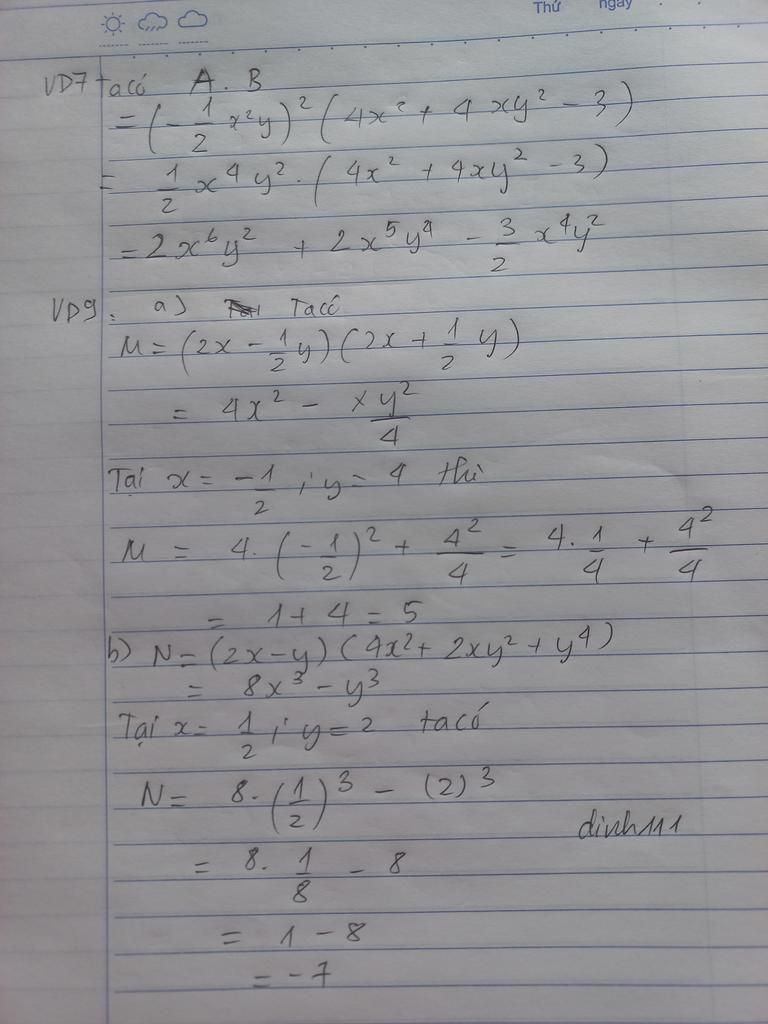 Thứ ngày
VD7 ta có A . B
= (-1/2 x²y)² (4x² + 4xy² - 3)
= 1/2 x⁴y² . (4x² + 4xy² - 3)
= 2x⁶y² + 2x⁵y⁴ - 3/2 x⁴y²
VD9: a) Ta có
M = (2x - 1/2 y) (2x + 1/2 y)
= 4x² - y²/4
Tại x = -1/2 ; y = 4 thì
M = 4. (-1/2)² + 4²/4 = 4. 1/4 + 4²/4
= 1 + 4 = 5
b) N = (2x - y) (4x² + 2xy² + y⁴)
= 8x³ - y³
Tại x = 1/2 ; y = 2 ta có
N = 8. (1/2)³ - (2)³
dinh111
= 8. 1/8 - 8
= 1 - 8
= -7